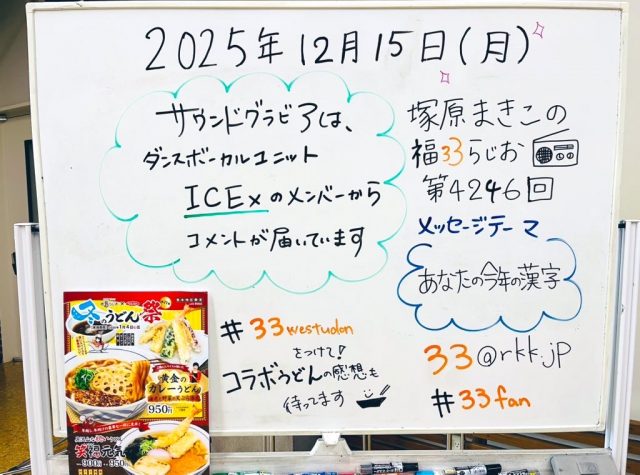 2025年12月15日(月)
サウンドグラビアは、
ダンスボーカルユニット
ICExのメンバーから
コメントが届いています
塚原まきこの
福33らじお
第4246回
メッセージテーマ
あなたの今年の漢字
33@rkk.jp
#33fan
#33westudon
をつけて!
コラボうどんの感想も
待ってます
冬のうどん祭
黄金の
カレーうどん
950円